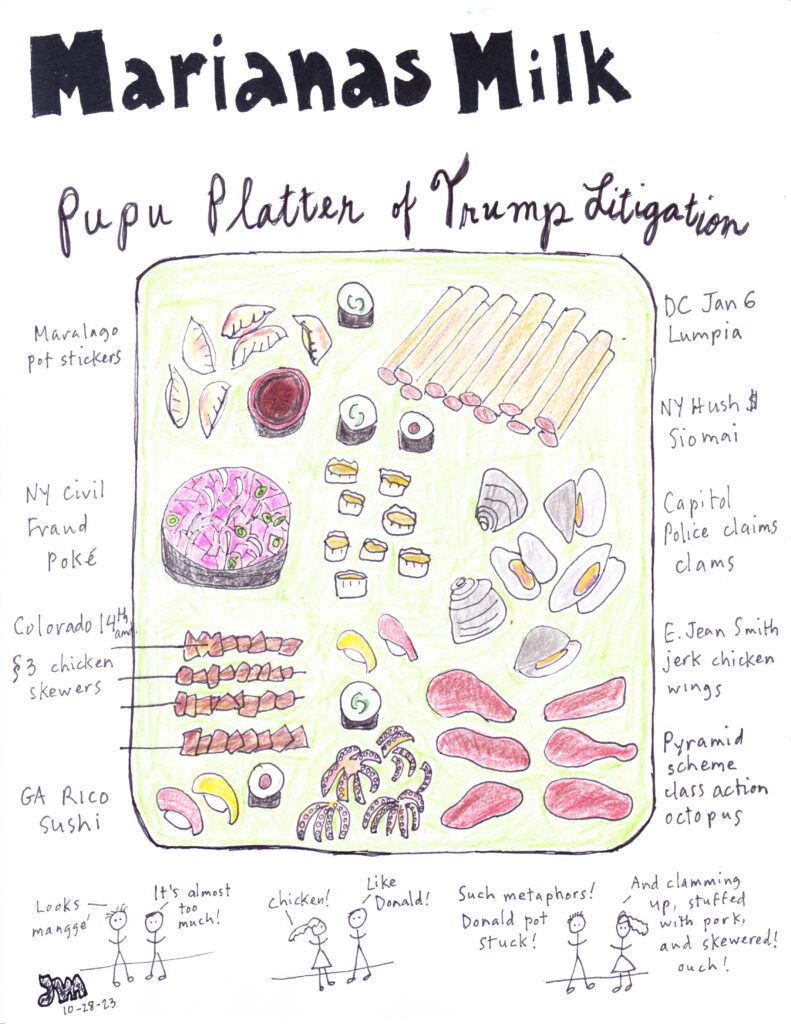 Marianas Milk
Pupu Platter of Trump Litigation
Maralago
pot stickers
NY Civil
Fraud
Poké
Colorado 14th
amd.
§3 chicken
skewers
GA RICO
sushi
DC Jan 6
Lumpia
NY Hush $
Siomai
Capitol
Police claims
clams
E. Jean Smith
jerk chicken
wings
Pyramid
scheme
class action
octopus
Looks
manggé
It's almost
too
much!
Chicken!
Like
Donald!
Such metaphors!
Donald pot
stuck!
And clamming
up, stuffed
with pork,
and skewered!
ouch!
10-28-23